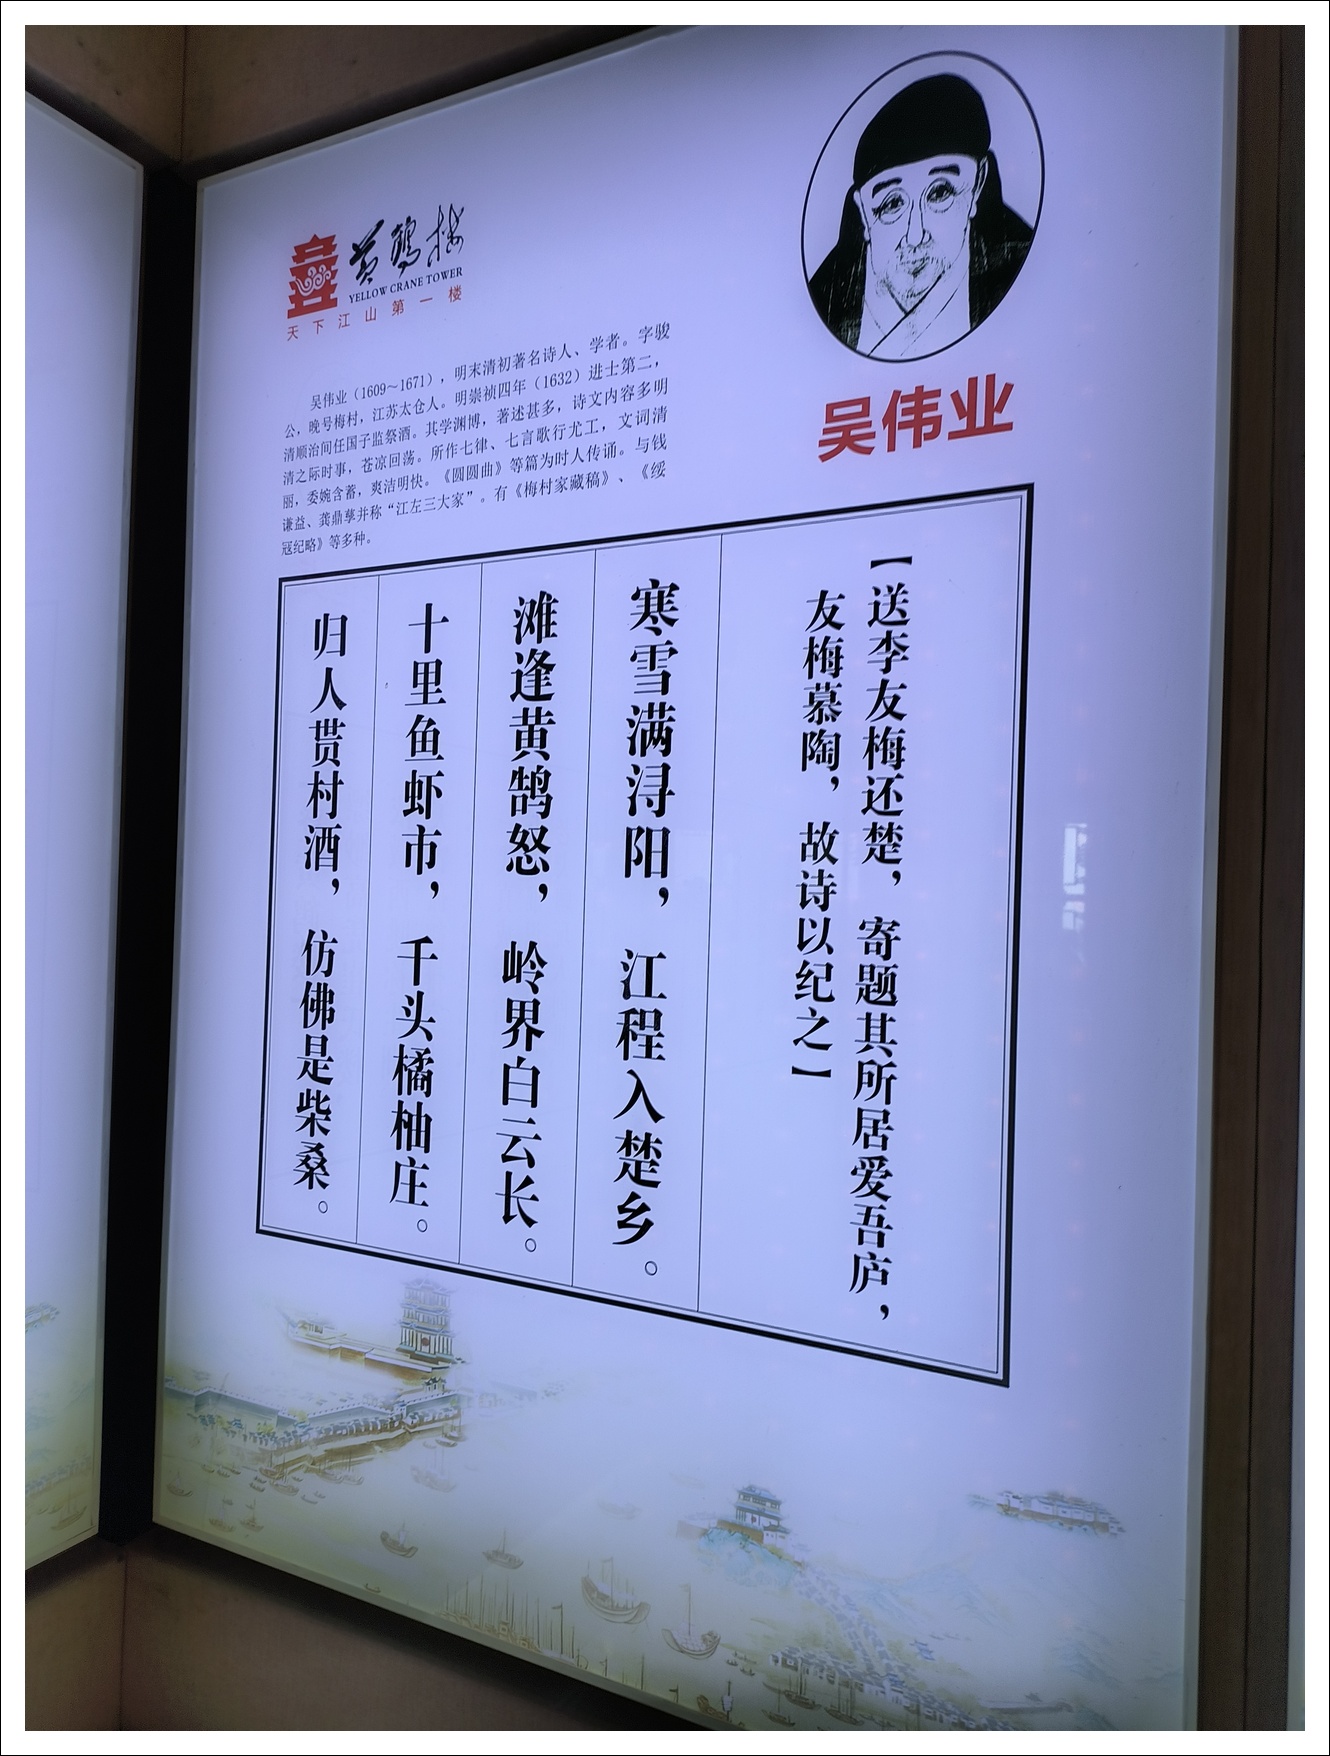 黄鹤楼
YELLOW CRANE TOWER
天下江山第一楼
吴伟业（1609～1671），明末清初著名诗人、学者。字骏
公，晚号梅村，江苏太仓人。明崇祯四年（1632）进士第二，
清顺治间任国子监祭酒。其学渊博，著述甚多，诗文内容多明
清之际时事，苍凉回荡。所作七律、七言歌行尤工，文词清
丽，委婉含蓄，爽洁明快。《圆圆曲》等篇为时人传诵。与钱
谦益、龚鼎孳并称“江左三大家”。有《梅村家藏稿》、《绥
寇纪略》等多种。
吴伟业
【送李友梅还楚，寄题其所居爱吾庐，
友梅慕陶，故诗以纪之】
寒雪满浔阳，江程入楚乡。
滩逢黄鹄怒，岭界白云长。
十里鱼虾市，千头橘柚庄。
归人贳村酒，仿佛是柴桑。